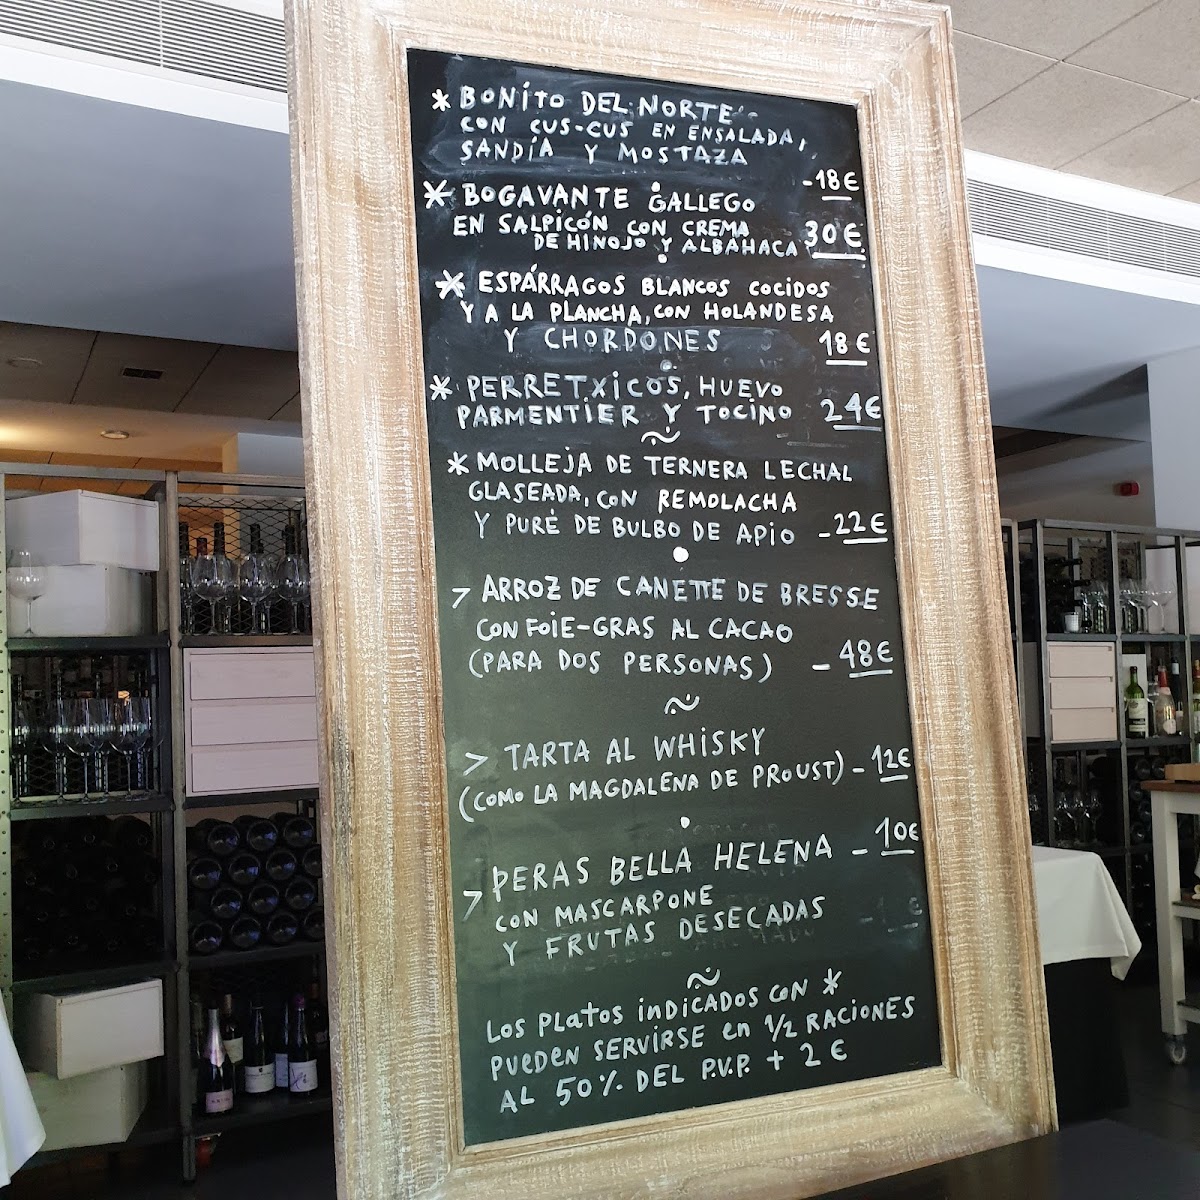 * BONITO DEL NORTE
CON CUS-CUS EN ENSALADA,
SANDÍA Y MOSTAZA
-18€
* BOGAVANTE GALLEGO
EN SALPICÓN CON CREMA
DE HINOJO Y ALBAHACA 30€
* ESPÁRRAGOS BLANCOS COCIDOS
Y A LA PLANCHA, CON HOLANDESA
Y CHORDONES 18€
* PERRETXICOS, HUEVO
PARMENTIER Y TOCINO 24€
* MOLLEJA DE TERNERA LECHAL
GLASEADA, CON REMOLACHA
Y PURÉ DE BULBO DE APIO -22€
> ARROZ DE CANETTE DE BRESSE
CON FOIE-GRAS AL CACAO
(PARA DOS PERSONAS) -48€
> TARTA AL WHISKY
(COMO LA MAGDALENA DE PROUST) -12€
> PERAS BELLA HELENA -10€
CON MASCARPONE
Y FRUTAS DESECADAS
LOS PLATOS INDICADOS CON *
PUEDEN SERVIRSE EN 1/2 RACIONES
AL 50% DEL P.V.P. + 2€